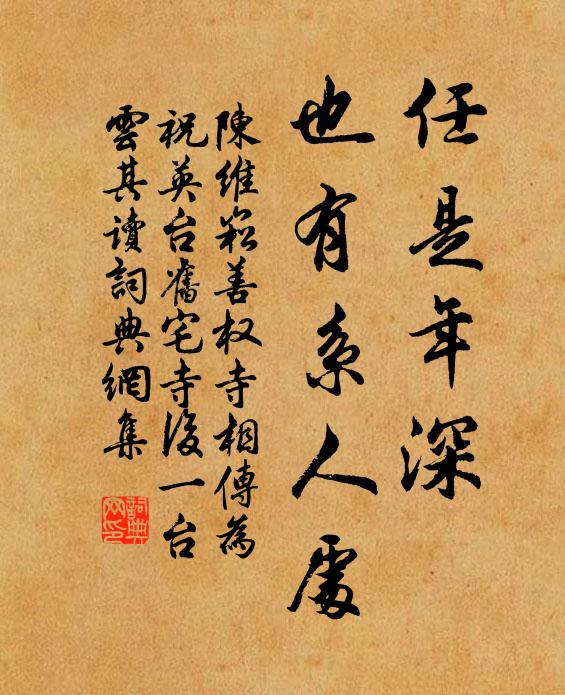 任是年深
也有系人處
陳維崧善权寺相傳為
祝英台舊宅寺後一台
雲其讀詞典網集
詞典網印